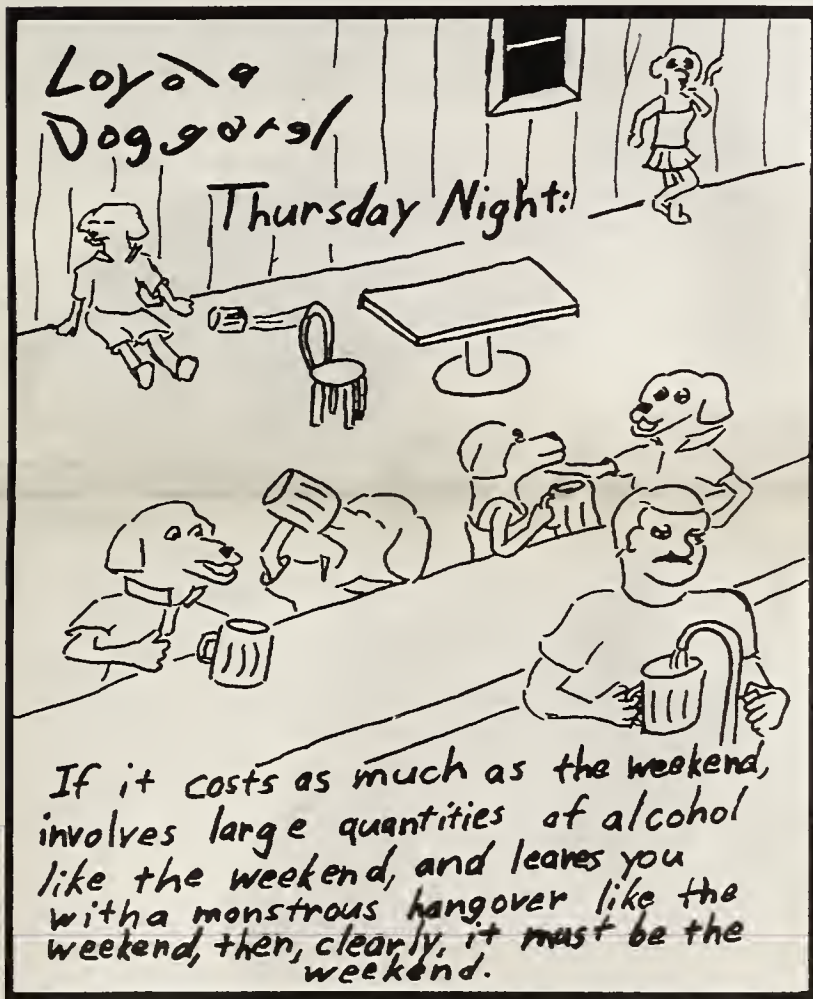 Loyola
Doggarel
Thursday Night:
If it costs as much as the weekend,
involves large quantities of alcohol
like the weekend, and leaves you
with a monstrous hangover like the
weekend, then, clearly, it must be the
weekend.